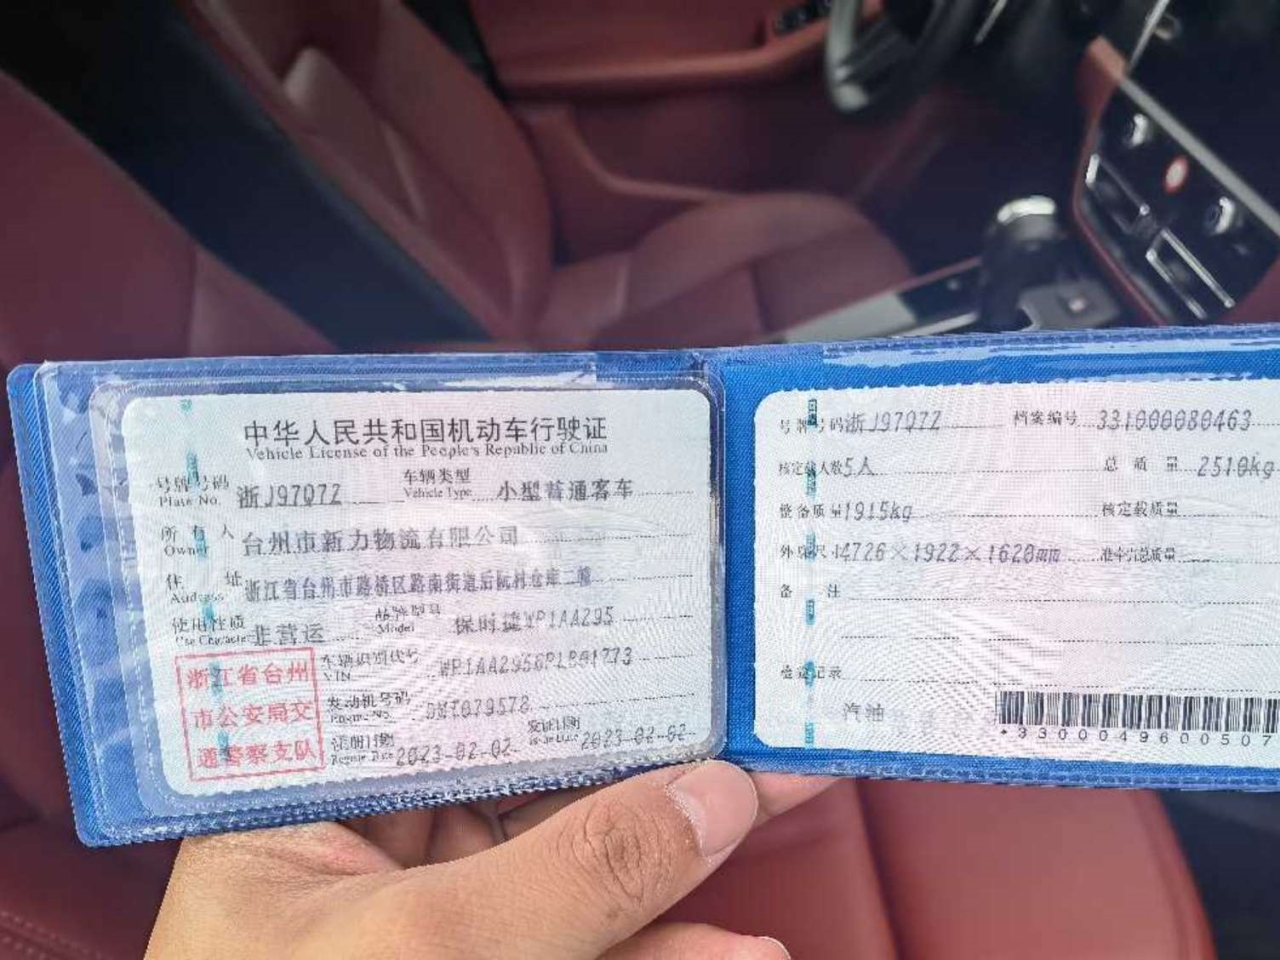 中华人民共和国机动车行驶证
Vehicle License of the People's Republic of China
号牌号码 浙J97Q7Z 车辆类型 小型普通客车
Plate No. Vehicle Type
所有人 台州市新力物流有限公司
Owner
住址 浙江省台州市路桥区路南街道后阮村仓库二幢
Address
使用性质 非营运 品牌型号 保时捷WP1AA295
Use Character Model
浙江省台州
市公安局交
通警察支队
车辆识别代号
VIN
发动机号码
Engine No.
注册日期 2023-02-02 发证日期 2023-02-02
Register Date Issue Date
号牌号码 浙J97Q7Z 档案编号 331000080463
核定载人数 5人 总质量 2510kg
整备质量 1915kg 核定载质量
外廓尺寸 4726×1922×1620mm 准牵引总质量
备注
检验记录
汽油
*3300049600507